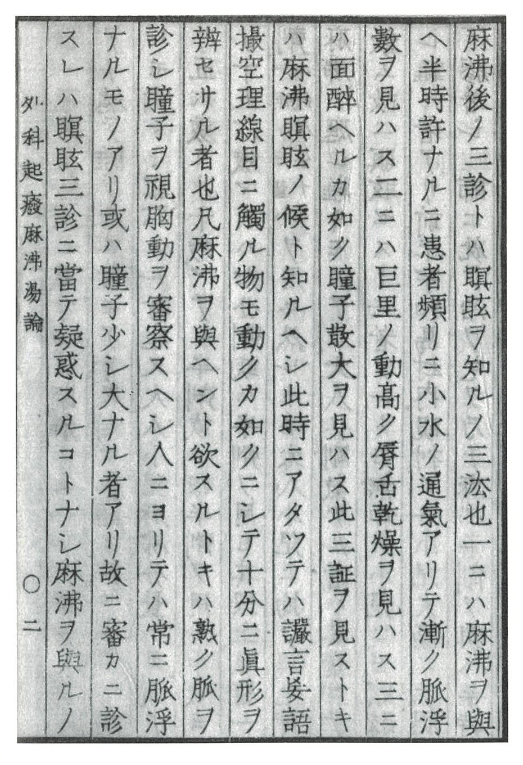 麻沸後ノ三診トハ瞑眩ヲ知ルノ三法也一ニハ麻沸ヲ與
ヘ半時許ナルニ患者頻リニ小水ノ通氣アリテ漸ク脈浮
數ヲ見ハス二ニハ巨里ノ動高ク脣舌乾燥ヲ見ハス三ニ
ハ面醉ヘルカ如ク瞳子散大ヲ見ハス此三証ヲ見ストキ
ハ麻沸瞑眩ノ候ト知ルヘシ此時ニアタツテハ讝言妄語
撮空理線目ニ觸ル物モ動クカ如クニシテ十分ニ眞形ヲ
辨セサル者也凡麻沸ヲ與ヘント欲スルトキハ熟ク脈ヲ
診シ瞳子ヲ視胸動ヲ審察スヘシ人ニヨリテハ常ニ脈浮
ナルモノアリ或ハ瞳子少シ大ナル者アリ故ニ審カニ診
スレハ瞑眩三診ニ當テ疑惑スルコトナシ麻沸ヲ與ルノ
外科起癈麻沸湯論 〇 二